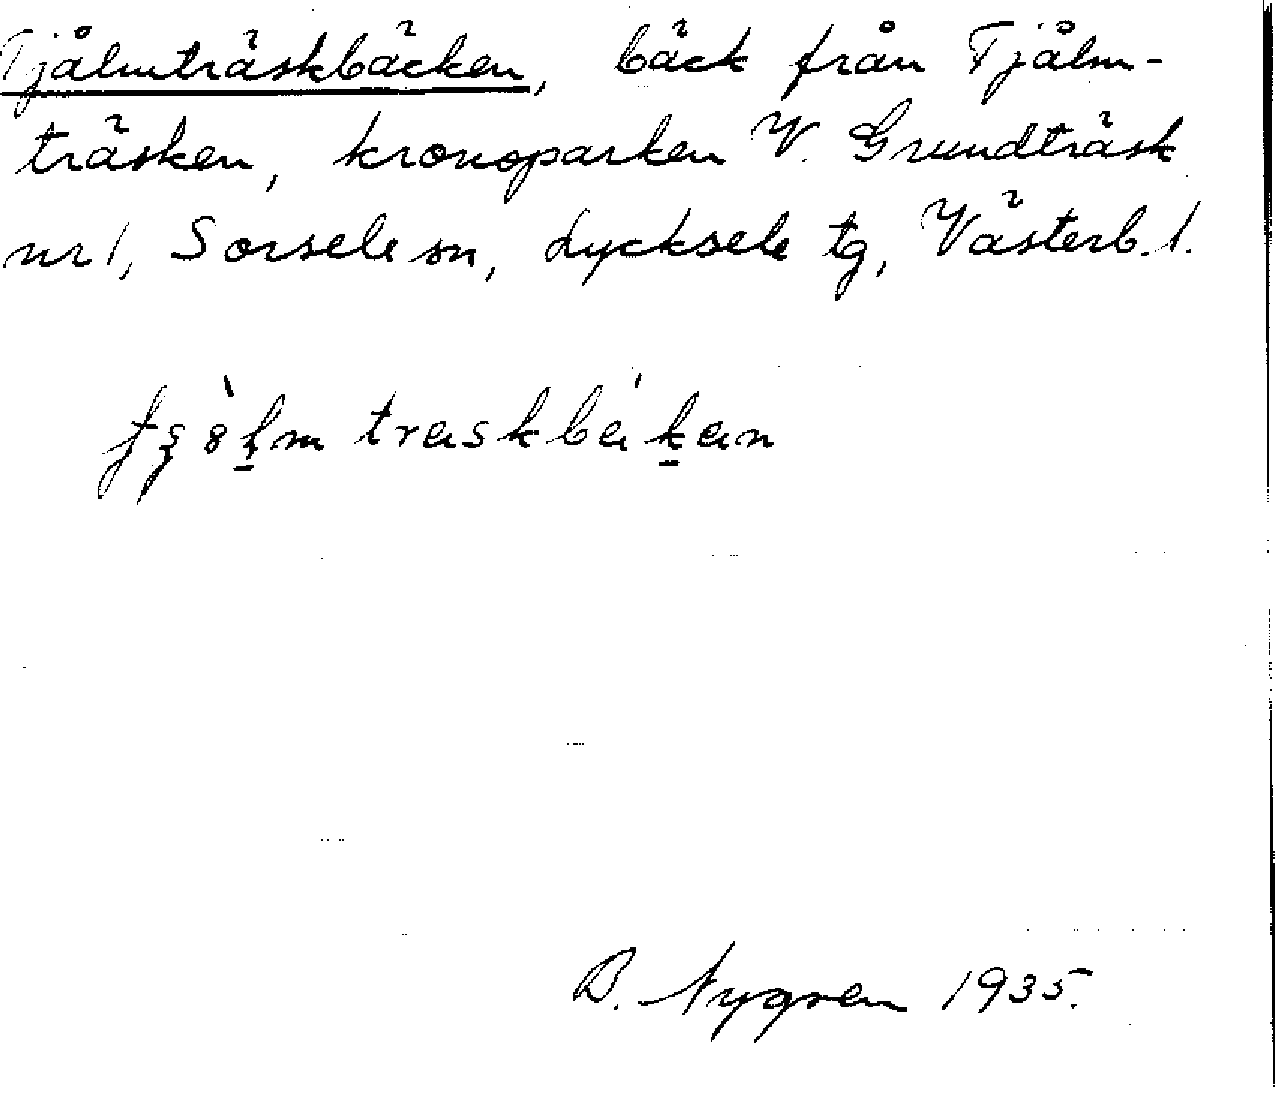 Tjålmträskbäcken, bäck från Tjålm-
träsken, kronoparken V. Grundträsk
nr 1, Sorsele sn, Lycksele tg, Västerb. l.
B. Nygren 1935.